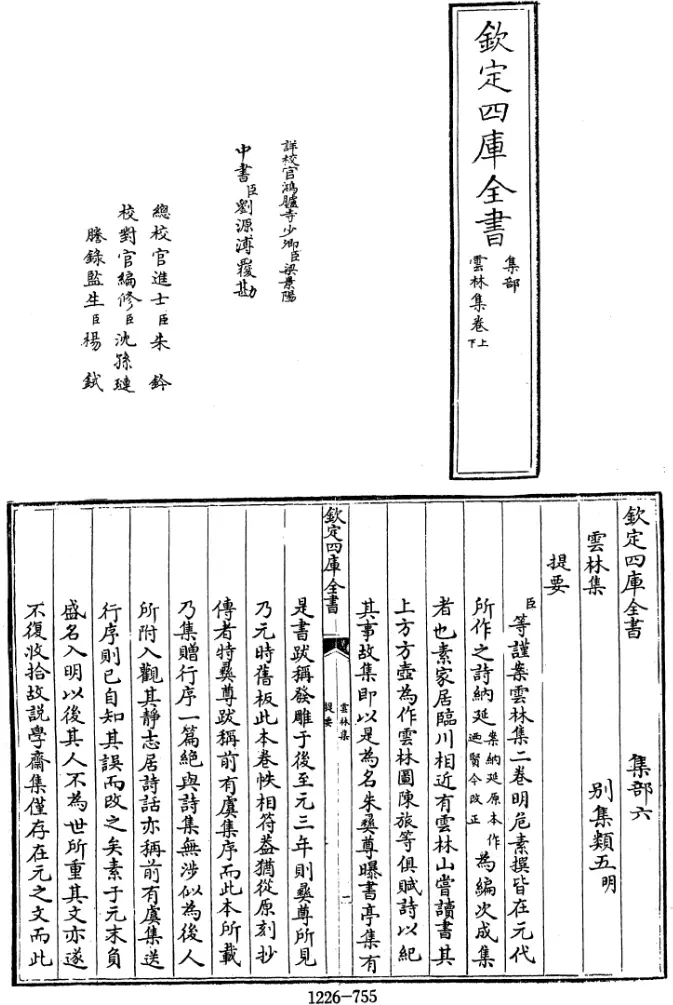 欽定四庫全書
集部
雲林集卷上下
詳校官鴻臚寺少卿臣梁景陽
中書臣劉源溥覆勘
總校官進士臣朱鈐
校對官編修臣沈孫璉
謄錄監生臣楊鉽
欽定四庫全書 集部六
雲林集 别集類五明
提要
臣等謹案雲林集二卷明危素撰皆在元代
所作之詩納延案納延原本作廼賢今改正為編次成集
者也素家居臨川相近有雲林山嘗讀書其
上方方壺為作雲林圖陳旅等俱賦詩以紀
其事故集即以是為名朱彞尊曝書亭集有
欽定四庫全書
雲林集
提要
一
是書跋稱發雕于後至元三年則彞尊所見
乃元時舊板此本卷帙相符蓋猶從原刻抄
傳者特彞尊跋稱前有虞集序而此本所載
乃集贈行序一篇絶與詩集無涉似為後人
所附入觀其静志居詩話亦稱前有虞集送
行序則已自知其誤而改之矣素于元末負
盛名入明以後其人不為世所重其文亦遂
不復收拾故說學齋集僅存在元之文而此
1226-755